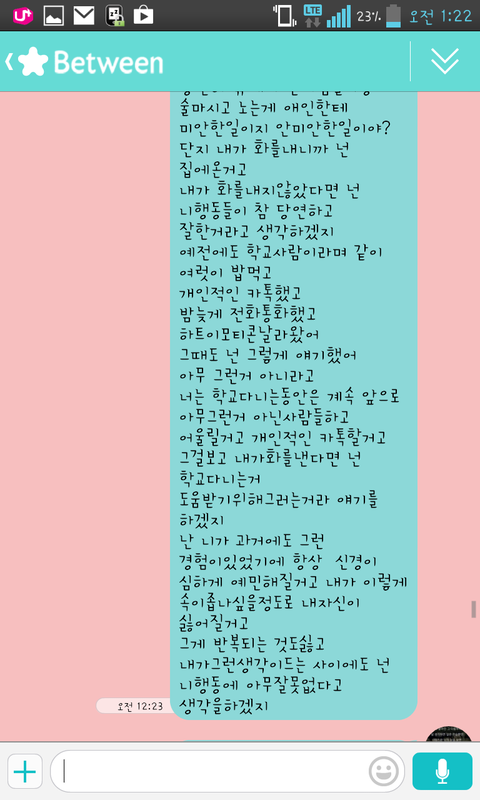 LTE
23%
오전 1:22
Between
술마시고 노는게 애인한테
미안한일이지 안미안한일이야?
단지 내가 화를내니까 넌
집에온거고
내가 화를내지않았다면 넌
니행동들이 참 당연하고
잘한거라고 생각하겠지
예전에도 학교사람이라며 같이
여럿이 밥먹고
개인적인 카톡했고
밤늦게 전화통화했고
하트이모티콘날라왔어
그때도 넌 그렇게 얘기했어
아무 그런거 아니라고
너는 학교다니는동안은 계속 앞으로
아무그런거 아닌사람들하고
어울릴거고 개인적인 카톡할거고
그걸보고 내가화를낸다면 넌
학교다니는거
도움받기위해그러는거라 얘기를
하겠지
난 니가 과거에도 그런
경험이있었기에 항상 신경이
심하게 예민해질거고 내가 이렇게
속이좁나싶을정도로 내자신이
싫어질거고
그게 반복되는 것도싫고
내가그런생각이드는 사이에도 넌
니행동에 아무잘못없다고
생각을하겠지
오전 12:23